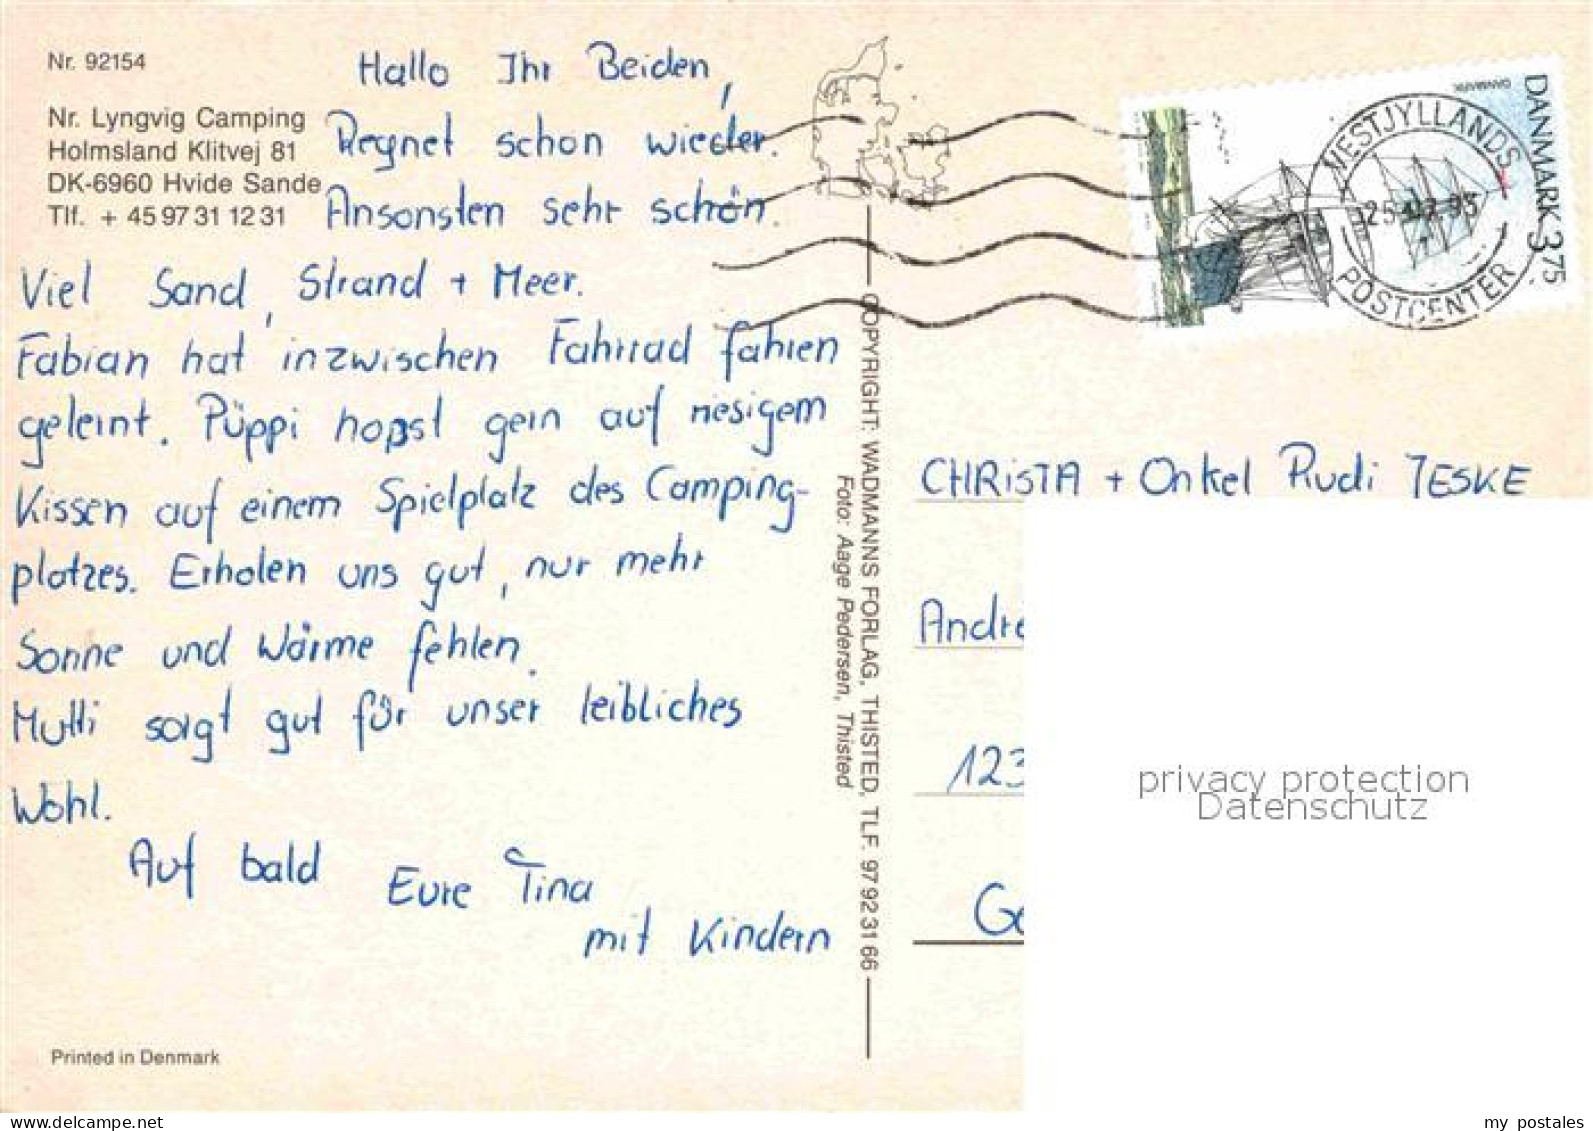 Nr. 92154
Nr. Lyngvig Camping
Holmsland Klitvej 81
DK-6960 Hvide Sande
Tlf. + 45 97 31 12 31
Hallo Ihr Beiden,
Regnet schon wieder.
Ansonsten sehr schön.
Viel Sand, Strand + Meer.
Fabian hat inzwischen Fahrrad fahren
gelernt. Püppi hopst gern auf riesigem
Kissen auf einem Spielplatz des Camping-
platzes. Erholen uns gut, nur mehr
Sonne und Wärme fehlen.
Mutti sorgt gut für unser leibliches
Wohl.
Auf bald Eure Tina
mit Kindern
Printed in Denmark
COPYRIGHT: WADMANNS FORLAG, THISTED, TLF. 97 92 31 66
Foto: Aage Pedersen, Thisted
DANMARK 3.75
DANMARK
VESTJYLLANDS
POSTCENTER
CHRISTA + Onkel Rudi JESKE
Andre
123
Ge
privacy protection
Datenschutz
www.delcampe.net
my postales